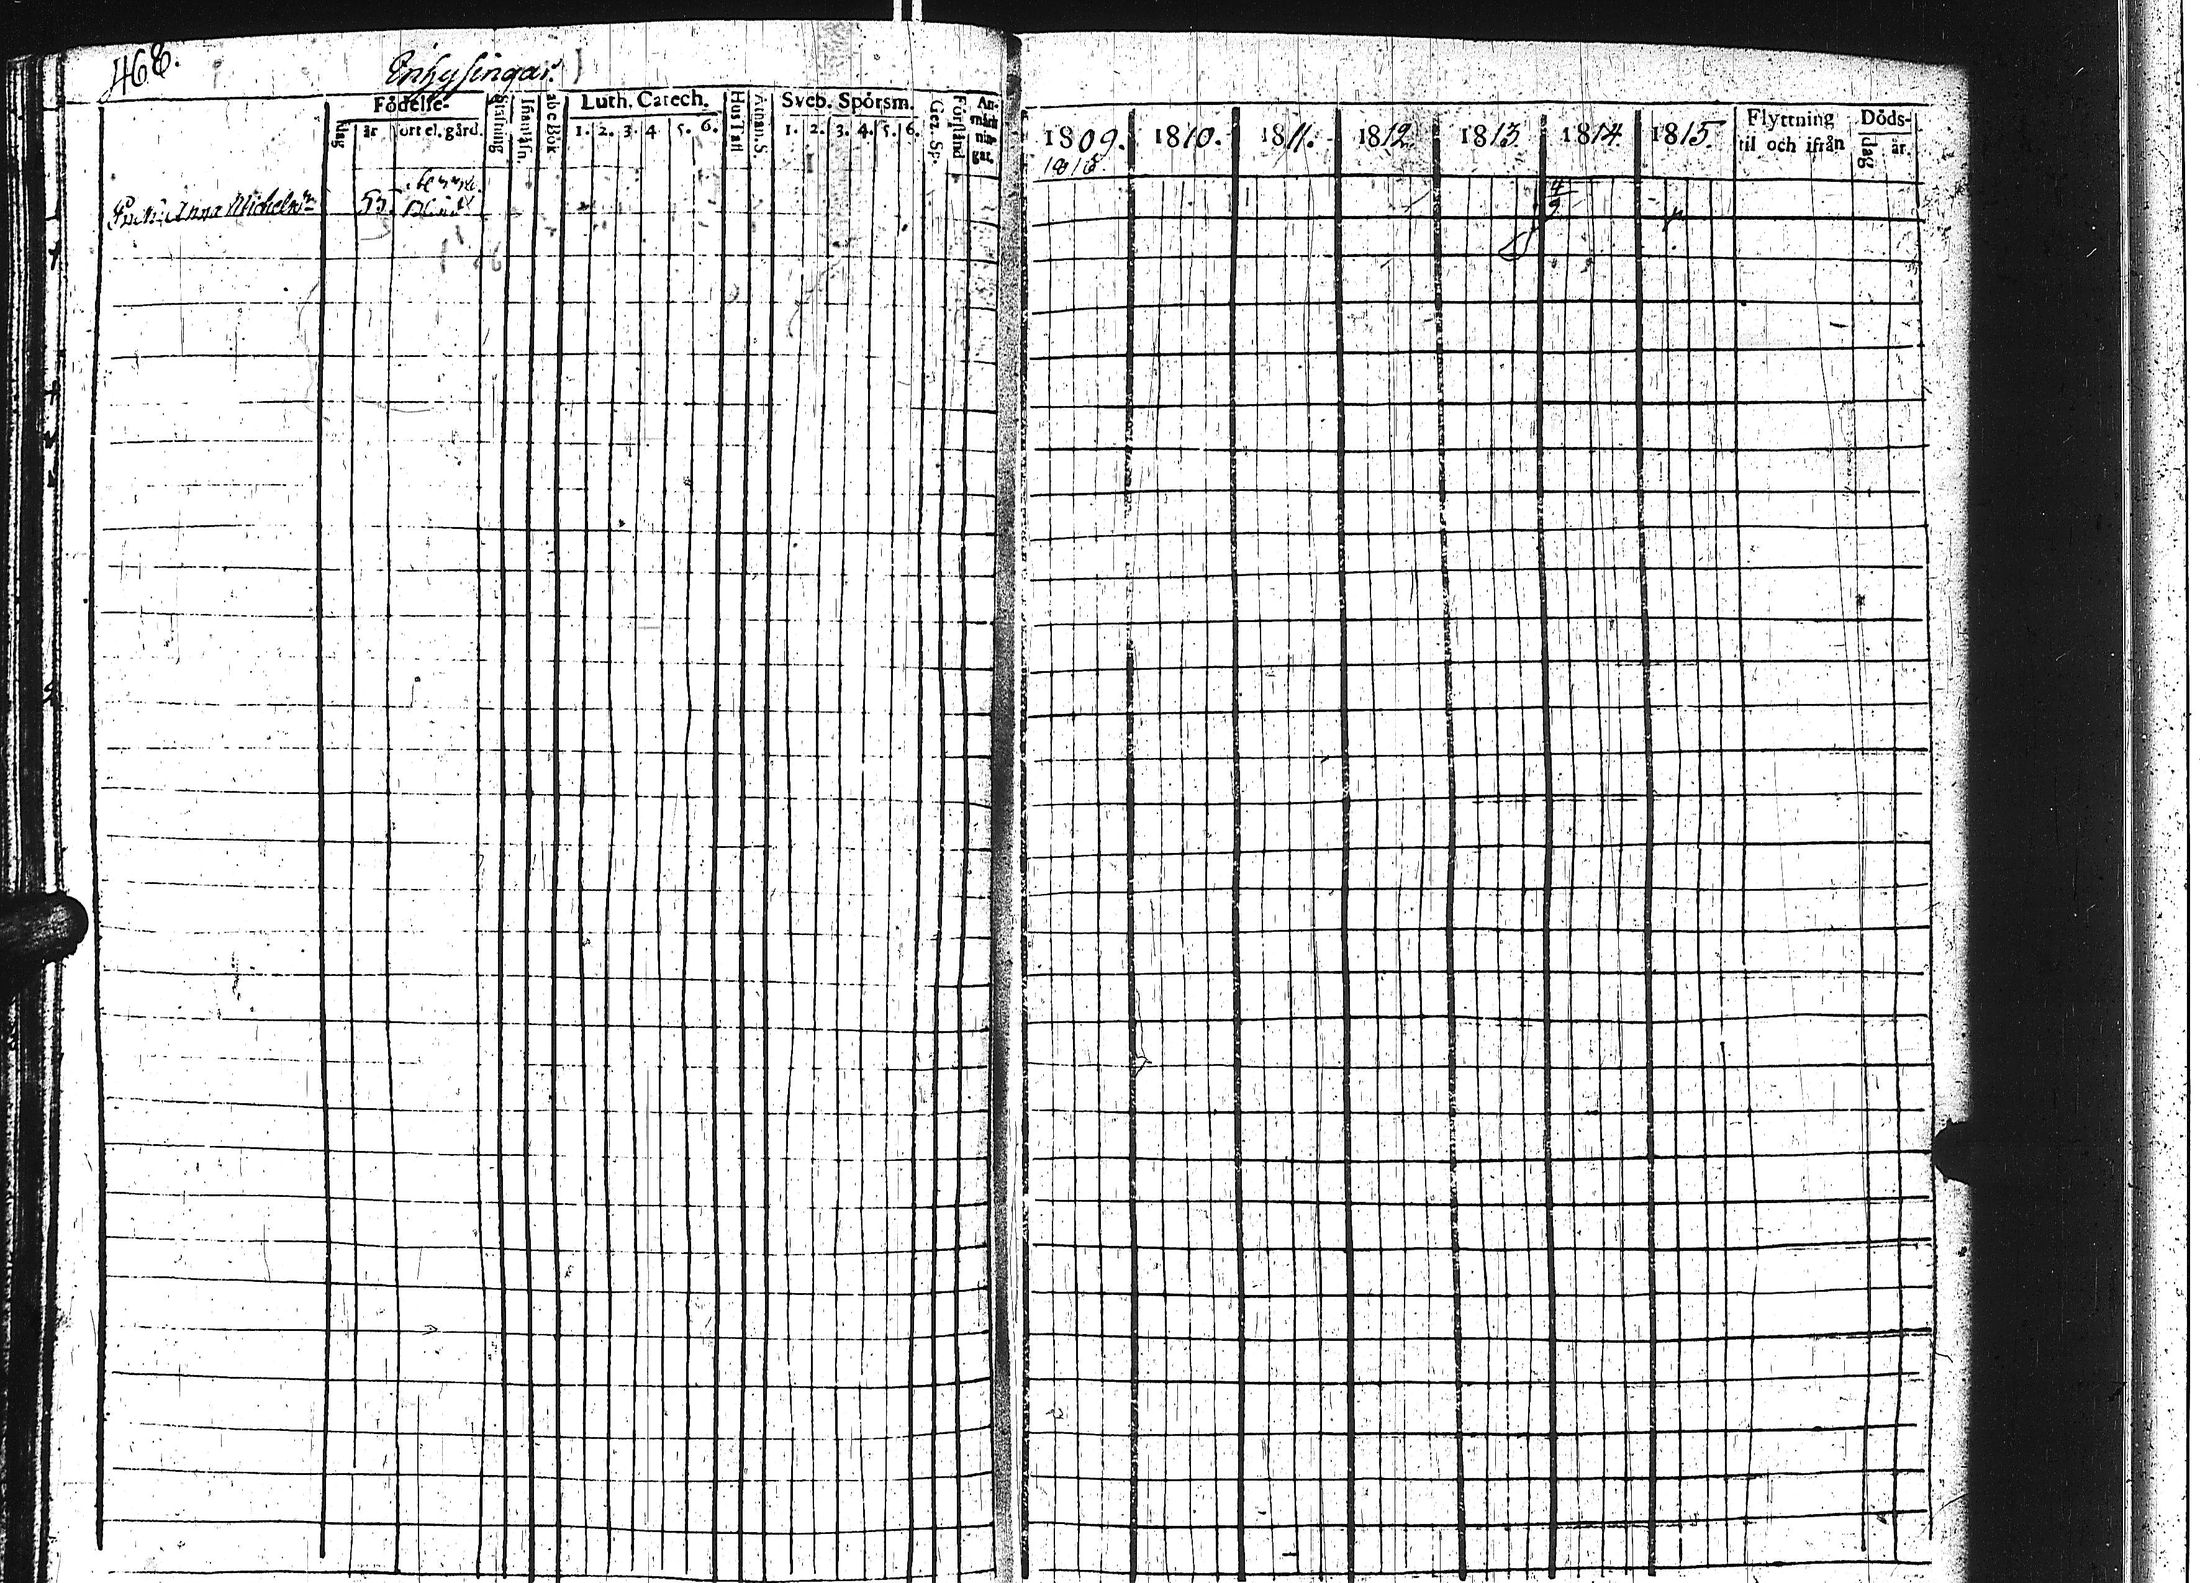 468.
Enhysingar.
Födelse-
dag år ort el. gård.
abc Bok
Luth. Catech.
1. 2. 3. 4 5. 6.
Hus Tafl
Athan. S.
Sveb. Spörsm.
1. 2. 3. 4. 5. 6.
Gez. Sp.
Förstånd
An-
märk
nin-
gar.
Anna Michelsdr 55.
1809. 1810. 1811. 1812. 1813. 1814. 1815.
1816
Flyttning
til och ifrån
Döds-
dag år.
4
9